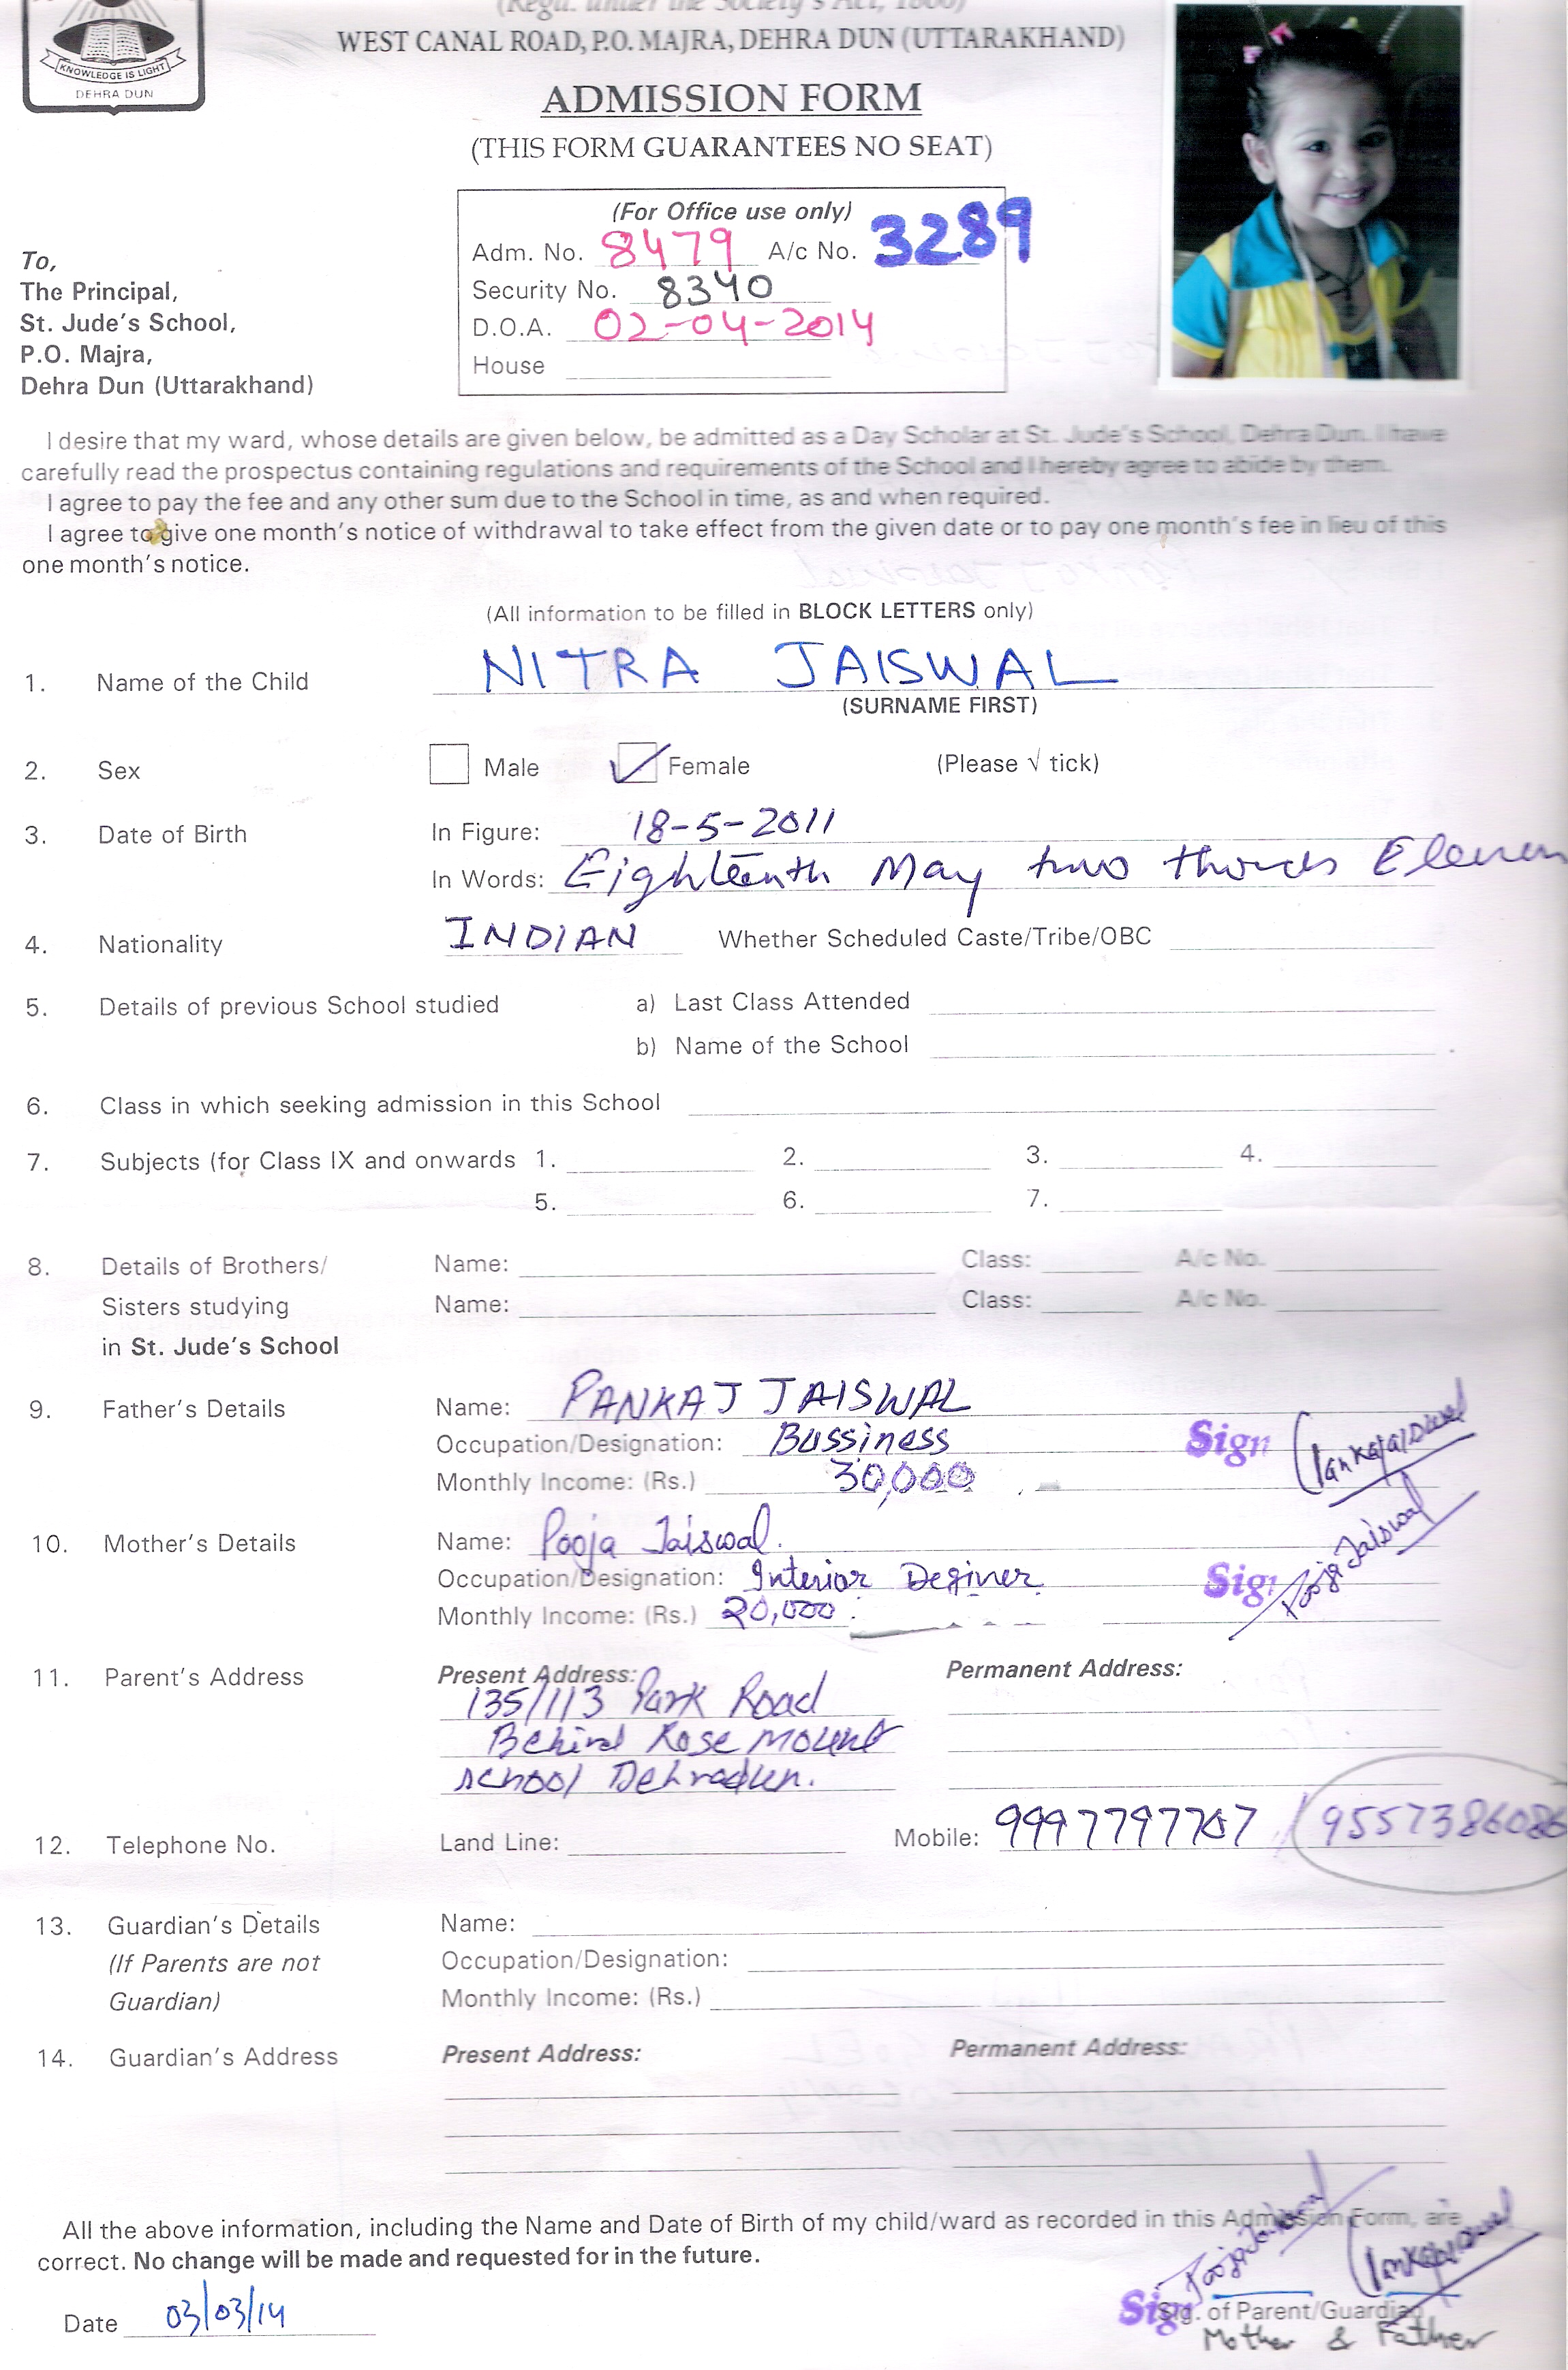 (Regd. under the Society's Act, 1860)
WEST CANAL ROAD, P.O. MAJRA, DEHRA DUN (UTTARAKHAND)
KNOWLEDGE IS LIGHT
DEHRA DUN
ADMISSION FORM
(THIS FORM GUARANTEES NO SEAT)
(For Office use only)
Adm. No. 8479 A/c No. 3289
Security No. 8340
D.O.A. 02-04-2014
House
To,
The Principal,
St. Jude's School,
P.O. Majra,
Dehra Dun (Uttarakhand)
I desire that my ward, whose details are given below, be admitted as a Day Scholar at St. Jude's School, Dehra Dun. I have
carefully read the prospectus containing regulations and requirements of the School and I hereby agree to abide by them.
I agree to pay the fee and any other sum due to the School in time, as and when required.
I agree to give one month's notice of withdrawal to take effect from the given date or to pay one month's fee in lieu of this
one month's notice.
(All information to be filled in BLOCK LETTERS only)
1. Name of the Child NITRA JAISWAL
(SURNAME FIRST)
2. Sex Male Female (Please √ tick)
3. Date of Birth In Figure: 18-5-2011
In Words: Eighteenth May two thous Eleven
4. Nationality INDIAN Whether Scheduled Caste/Tribe/OBC
5. Details of previous School studied a) Last Class Attended
b) Name of the School
6. Class in which seeking admission in this School
7. Subjects (for Class IX and onwards 1. 2. 3. 4.
5. 6. 7.
8. Details of Brothers/ Name: Class: A/c No.
Sisters studying Name: Class: A/c No.
in St. Jude's School
9. Father's Details Name: PANKAJ JAISWAL
Occupation/Designation: Bussiness Sign Pankajaiswal
Monthly Income: (Rs.) 30,000
10. Mother's Details Name: Pooja Jaiswal.
Occupation/Designation: Interior Deginer Sign Pooja Jaiswal
Monthly Income: (Rs.) 20,000
11. Parent's Address Present Address: Permanent Address:
135/113 Park Road
Behind Rose Mount
school Dehradun.
12. Telephone No. Land Line: Mobile: 9997797707 / 9557386086
13. Guardian's Details Name:
(If Parents are not Occupation/Designation:
Guardian) Monthly Income: (Rs.)
14. Guardian's Address Present Address: Permanent Address:
All the above information, including the Name and Date of Birth of my child/ward as recorded in this Admission Form, are
correct. No change will be made and requested for in the future.
Pooja Jaiswal Pankajaiswal
Date 03/03/14 Sign Sig. of Parent/Guardian
Mother & Father